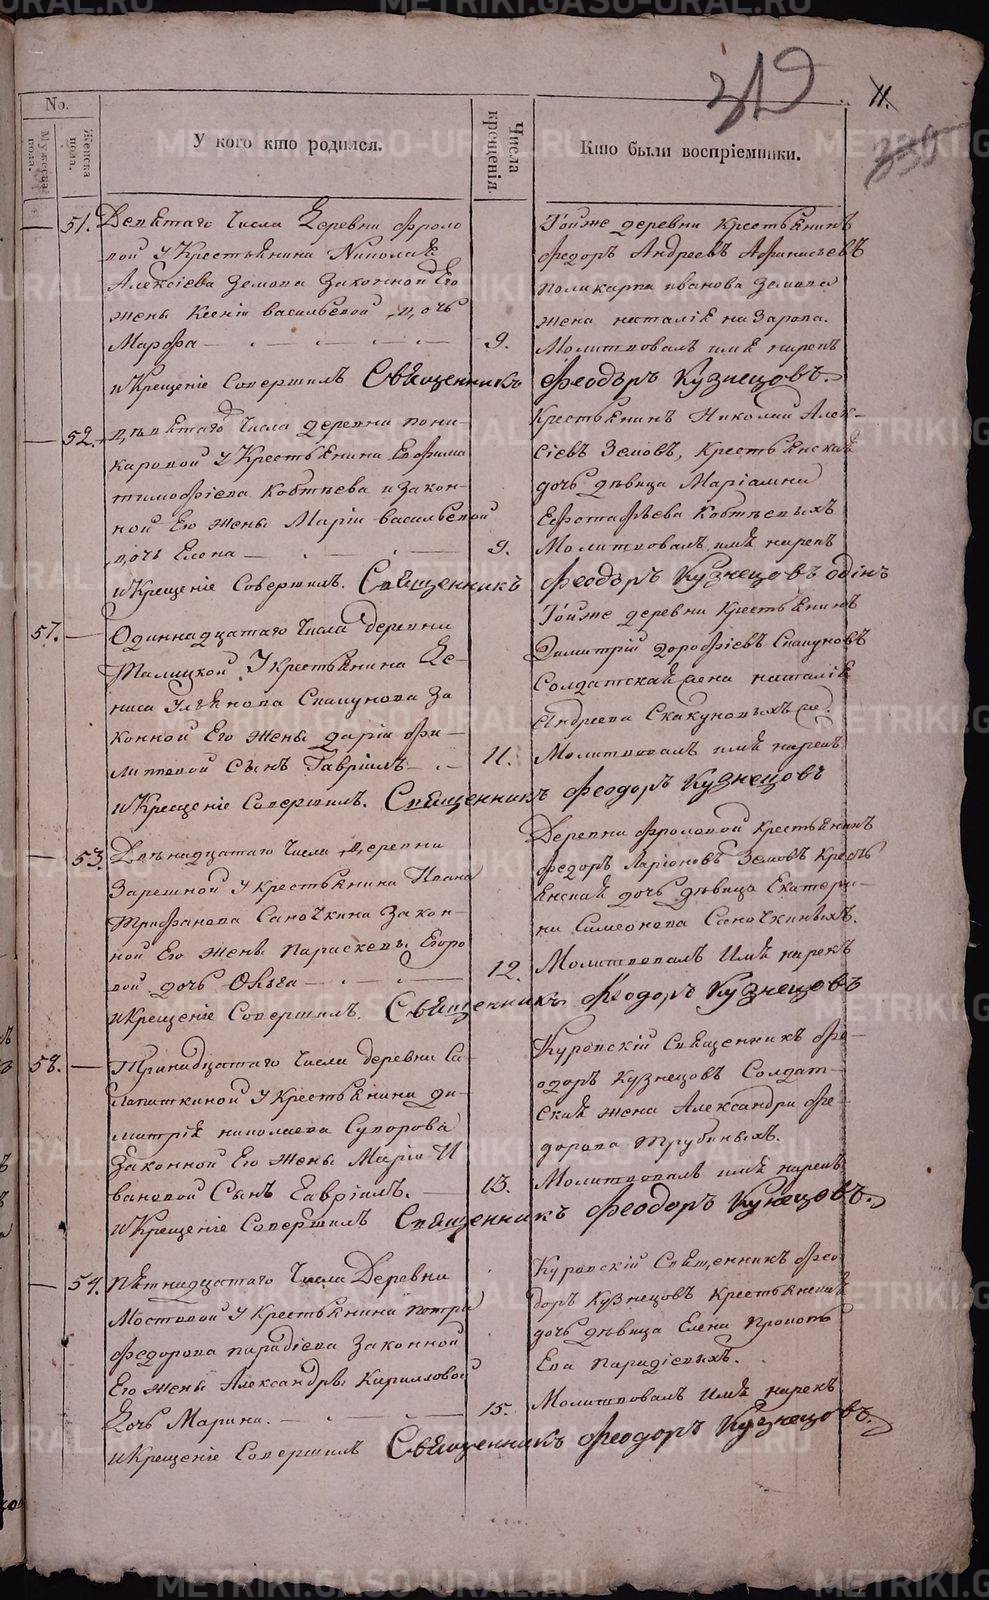 319
11.
No.
Мужеска пола.
Женска пола.
У кого кто родился.
Числа крещенія.
Кто были воспріемники.
51. Девятаго Числа Деревни Фроло
вой У Крестьянина Николая
Алексіева Земова Законной Его
жены Ксеніи васильевой дочь
Марфа 9.
и Крещеніе Совершилъ Священникъ Феодоръ Кузнецовъ.
Тойже деревни Крестьянинъ
Федоръ Андреевъ
поликарпа иванова Земова
жена наталія назарова.
Молитвовалъ имя нарекъ
52. девятаго Числа деревни пони-
каровой У Крестьянина Ефима
тимофіева Коптяева и Закон-
ной Его жены Маріи васильевой
дочь Елена 9.
и Крещеніе Совершилъ. Священникъ Феодоръ Кузнецовъ одінъ
Крестьянинъ Николай Алек-
сіевъ Земовъ, Крестьянская
дочь дѣвица Маріамна
Молитвовалъ имя нарекъ
57. Одиннадцатаго Числа деревни
Талицкой У Крестьянина Де-
ниса Скакунова За
конной Его жены даріи фи-
липповой Сынъ Гавріилъ 11.
и Крещеніе Совершилъ. Священникъ Феодоръ Кузнецовъ
Тойже деревни Крестьянинъ
Димитрій дорофіевъ Скакуновъ
Солдатская жена наталія
Андреева Скакуновыхъ
Молитвовалъ имя нарекъ
53. Двѣнадцатаго Числа деревни
Зарешной У Крестьянина Ивана
Трифанова Саночкина Закон-
ной Его жены Параскевы Егоро
вой дочь Ольга 12.
и Крещеніе Совершилъ. Священникъ Феодоръ Кузнецовъ
Деревни Фроловой Крестьянинъ
Федоръ Ларіоновъ Земовъ Кресть
янская дочь дѣвица Екатери-
на Симеонова Саночкиныхъ.
Молитвовалъ Имя нарекъ
58. Тринадцатаго Числа деревни Са-
лапаткиной У Крестьянина ди-
митрія николаева Суворова
Законной Его жены Маріи И
вановой Сынъ Гавріилъ. 13.
и Крещеніе Совершилъ Священникъ Феодоръ Кузнецовъ.
Куровскій Священникъ Фе-
одоръ Кузнецовъ Солдат-
ская жена Александра Фе-
дорова Трубиныхъ.
Молитвовалъ имя нарекъ
54. пятнадцатаго Числа Деревни
Мостовой У Крестьянина петра
Федорова парадіева Законной
Его жены Александры Кириловой
Дочь Марина. 15.
и Крещеніе Совершилъ Священникъ Феодоръ Кузнецовъ.
Куровскій Священникъ Фео
доръ Кузнецовъ Крестьянская
дочь дѣвица Елена Прокопь
ева Парадіевыхъ.
Молитвовалъ Имя нарекъ
METRIKI.GASO-URAL.RU